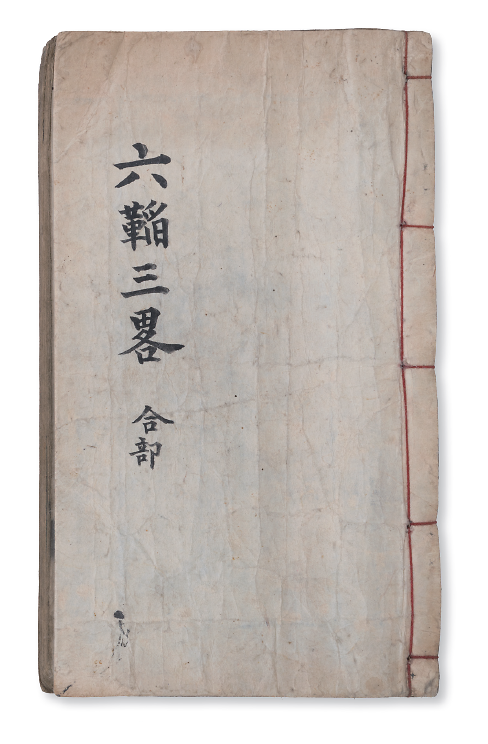 六韜三畧 合部